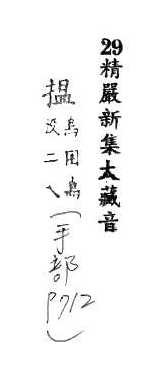 29精嚴新集太藏音
搵烏困烏
没二乀（手部P712）